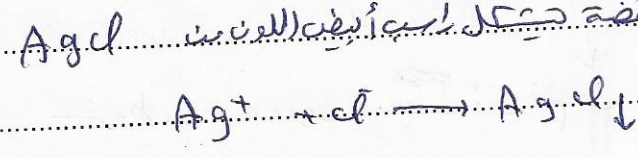 ضة حيتشكل راسب أبيض اللون من AgCl
Ag⁺ + Cl⁻ → AgCl↓